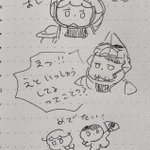 えっ!!
えといっしゅう
してる
ってこと??
めでたい!